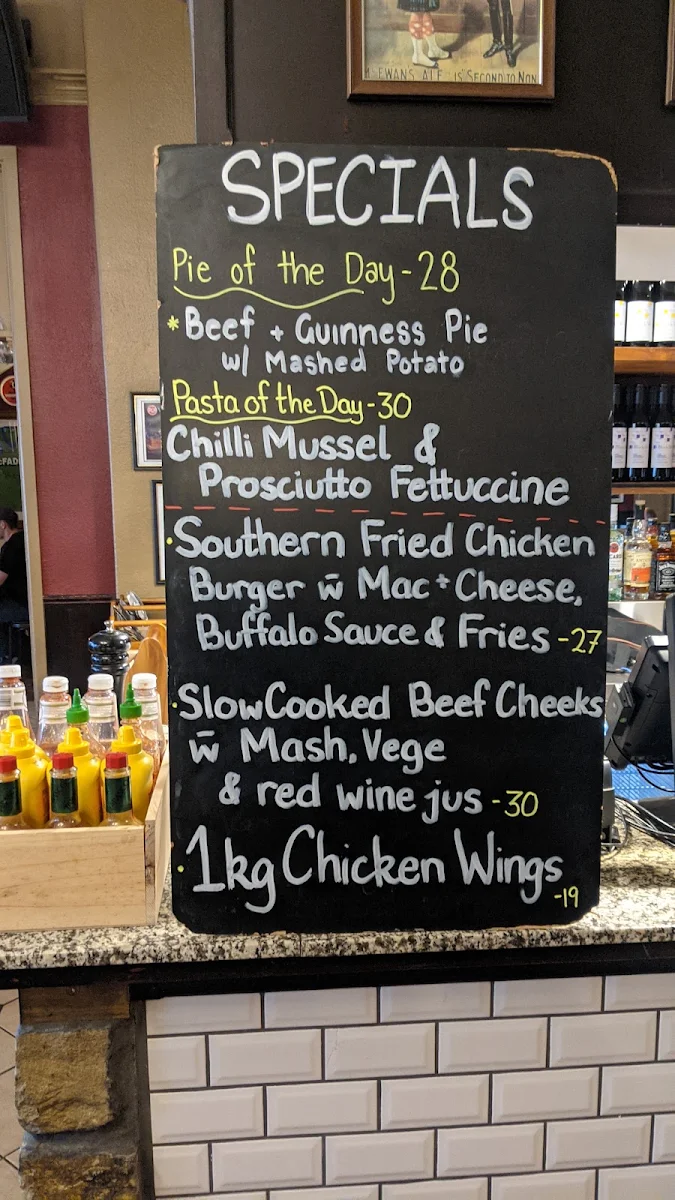 M͟cEWAN'S ALE IS SECOND TO NON
SPECIALS
Pie of the Day - 28
* Beef + Guinness Pie
w/ Mashed Potato
Pasta of the Day - 30
Chilli Mussel &
Prosciutto Fettuccine
· Southern Fried Chicken
Burger w̄ Mac + Cheese,
Buffalo Sauce & Fries - 27
· Slow Cooked Beef Cheeks
w̄ Mash, Vege
& red wine jus - 30
· 1kg Chicken Wings
- 19